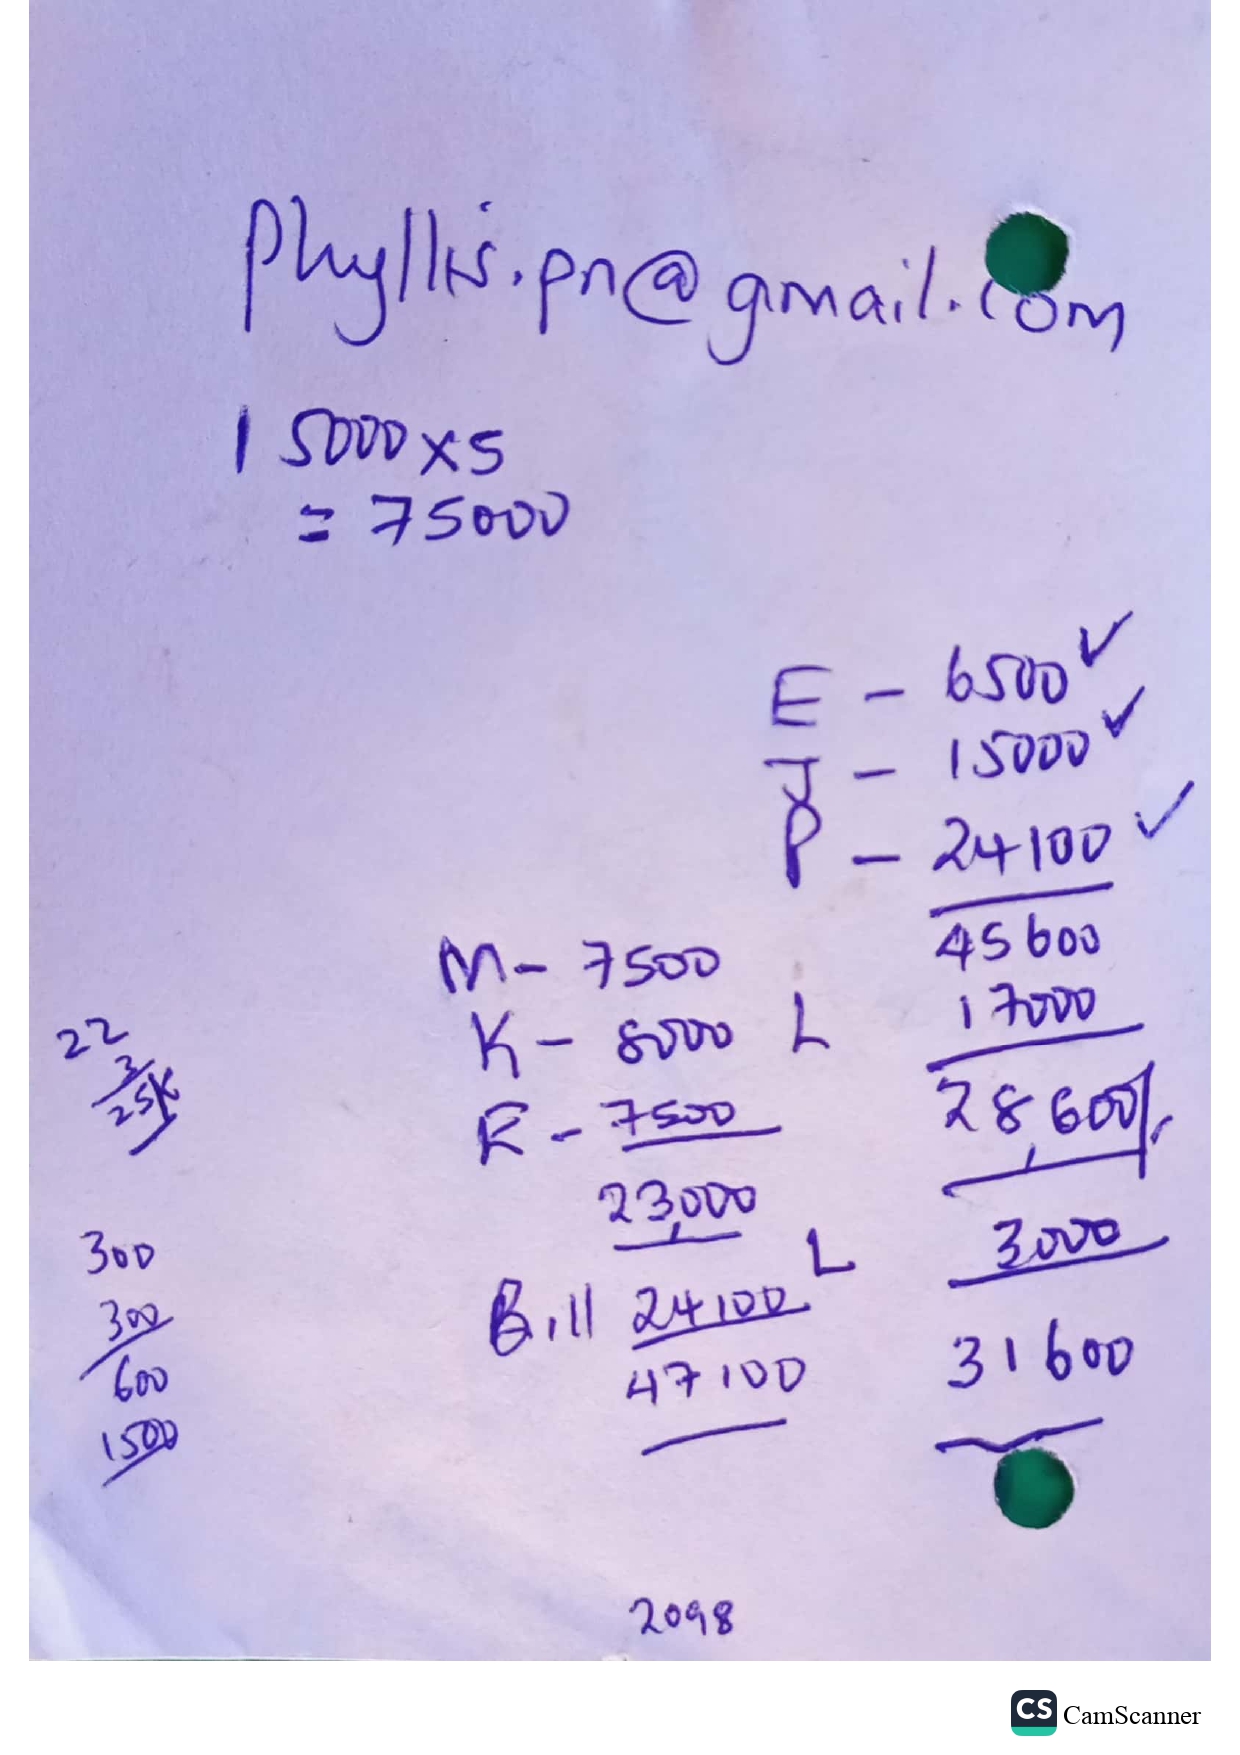 Phyllis.pn@gmail.com
15000x5
= 75000
E - 6500 ✓
J - 15000 ✓
P - 24100 ✓
45600
L 17000
28,600/.
L 3000
31600
M - 7500
K - 8000
R - 7500
23,000
Bill 24100
47100
22
3
25K
300
300
600
1500
2098
CS CamScanner